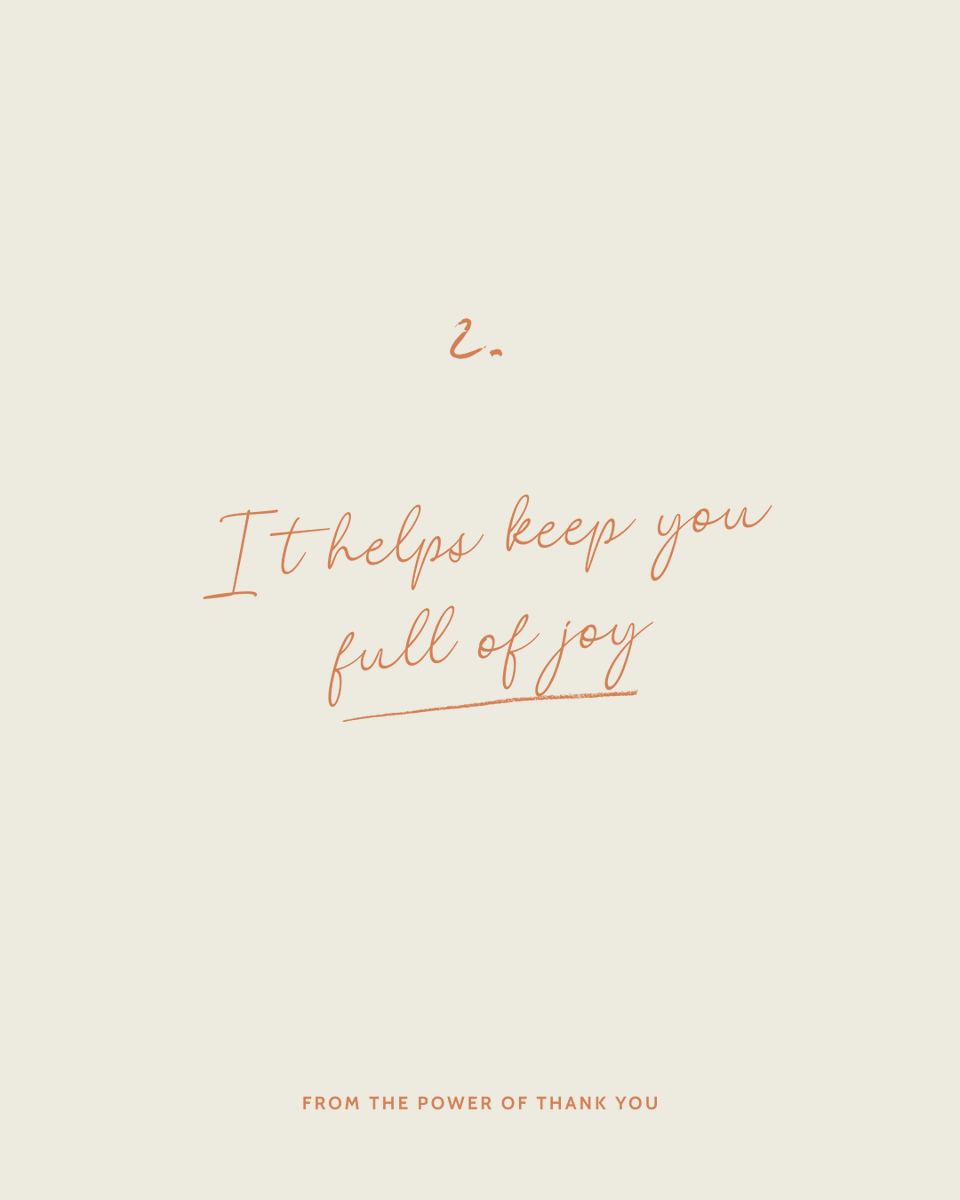 2.
It helps keep you
full of joy
FROM THE POWER OF THANK YOU